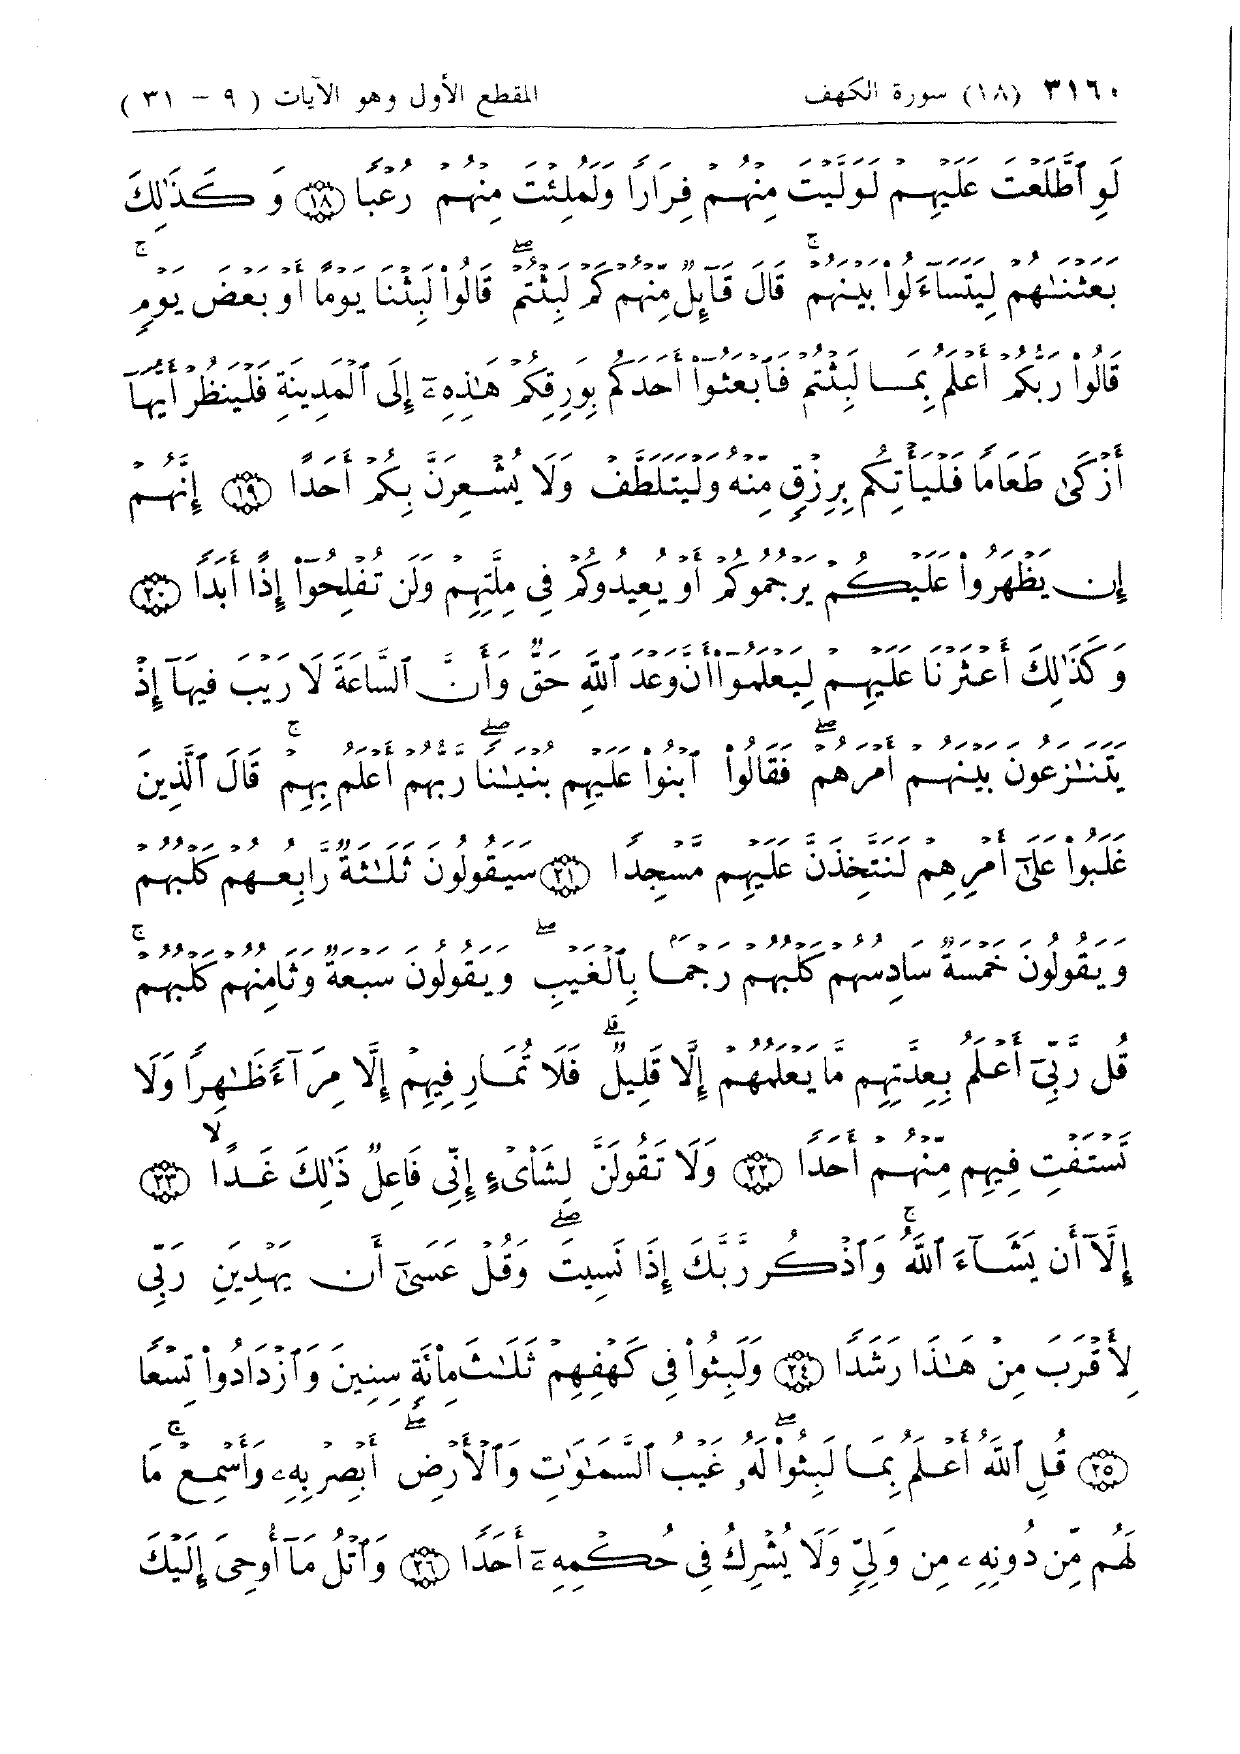 ٣١٦٠ (١٨) سورة الكهف المقطع الأول وهو الآيات ( ٩ - ٣١ )
لَوِ ٱطَّلَعْتَ عَلَيْهِمْ لَوَلَّيْتَ مِنْهُمْ فِرَارًا وَلَمُلِئْتَ مِنْهُمْ رُعْبًا ﴿١٨﴾ وَكَذَٰلِكَ
بَعَثْنَٰهُمْ لِيَتَسَآءَلُوا۟ بَيْنَهُمْ ۚ قَالَ قَآئِلٌ مِّنْهُمْ كَمْ لَبِثْتُمْ ۖ قَالُوا۟ لَبِثْنَا يَوْمًا أَوْ بَعْضَ يَوْمٍ ۚ
قَالُوا۟ رَبُّكُمْ أَعْلَمُ بِمَا لَبِثْتُمْ فَٱبْعَثُوٓا۟ أَحَدَكُم بِوَرِقِكُمْ هَٰذِهِۦٓ إِلَى ٱلْمَدِينَةِ فَلْيَنظُرْ أَيُّهَآ
أَزْكَىٰ طَعَامًا فَلْيَأْتِكُم بِرِزْقٍ مِّنْهُ وَلْيَتَلَطَّفْ وَلَا يُشْعِرَنَّ بِكُمْ أَحَدًا ﴿١٩﴾ إِنَّهُمْ
إِن يَظْهَرُوا۟ عَلَيْكُمْ يَرْجُمُوكُمْ أَوْ يُعِيدُوكُمْ فِى مِلَّتِهِمْ وَلَن تُفْلِحُوٓا۟ إِذًا أَبَدًا ﴿٢٠﴾
وَكَذَٰلِكَ أَعْثَرْنَا عَلَيْهِمْ لِيَعْلَمُوٓا۟ أَنَّ وَعْدَ ٱللَّهِ حَقٌّ وَأَنَّ ٱلسَّاعَةَ لَا رَيْبَ فِيهَآ إِذْ
يَتَنَٰزَعُونَ بَيْنَهُمْ أَمْرَهُمْ ۖ فَقَالُوا۟ ٱبْنُوا۟ عَلَيْهِم بُنْيَٰنًا ۖ رَّبُّهُمْ أَعْلَمُ بِهِمْ ۚ قَالَ ٱلَّذِينَ
غَلَبُوا۟ عَلَىٰٓ أَمْرِهِمْ لَنَتَّخِذَنَّ عَلَيْهِم مَّسْجِدًا ﴿٢١﴾ سَيَقُولُونَ ثَلَٰثَةٌ رَّابِعُهُمْ كَلْبُهُمْ
وَيَقُولُونَ خَمْسَةٌ سَادِسُهُمْ كَلْبُهُمْ رَجْمًۢا بِٱلْغَيْبِ ۖ وَيَقُولُونَ سَبْعَةٌ وَثَامِنُهُمْ كَلْبُهُمْ ۚ
قُل رَّبِّىٓ أَعْلَمُ بِعِدَّتِهِم مَّا يَعْلَمُهُمْ إِلَّا قَلِيلٌ ۗ فَلَا تُمَارِ فِيهِمْ إِلَّا مِرَآءً ظَٰهِرًا وَلَا
تَسْتَفْتِ فِيهِم مِّنْهُمْ أَحَدًا ﴿٢٢﴾ وَلَا تَقُولَنَّ لِشَا۟ىْءٍ إِنِّى فَاعِلٌ ذَٰلِكَ غَدًا ۙ ﴿٢٣﴾
إِلَّآ أَن يَشَآءَ ٱللَّهُ ۚ وَٱذْكُر رَّبَّكَ إِذَا نَسِيتَ ۖ وَقُلْ عَسَىٰٓ أَن يَهْدِيَنِ رَبِّى
لِأَقْرَبَ مِنْ هَٰذَا رَشَدًا ﴿٢٤﴾ وَلَبِثُوا۟ فِى كَهْفِهِمْ ثَلَٰثَ مِا۟ئَةٍ سِنِينَ وَٱزْدَادُوا۟ تِسْعًا
﴿٢٥﴾ قُلِ ٱللَّهُ أَعْلَمُ بِمَا لَبِثُوا۟ ۖ لَهُۥ غَيْبُ ٱلسَّمَٰوَٰتِ وَٱلْأَرْضِ ۖ أَبْصِرْ بِهِۦ وَأَسْمِعْ ۚ مَا
لَهُم مِّن دُونِهِۦ مِن وَلِىٍّ وَلَا يُشْرِكُ فِى حُكْمِهِۦٓ أَحَدًا ﴿٢٦﴾ وَٱتْلُ مَآ أُوحِىَ إِلَيْكَ